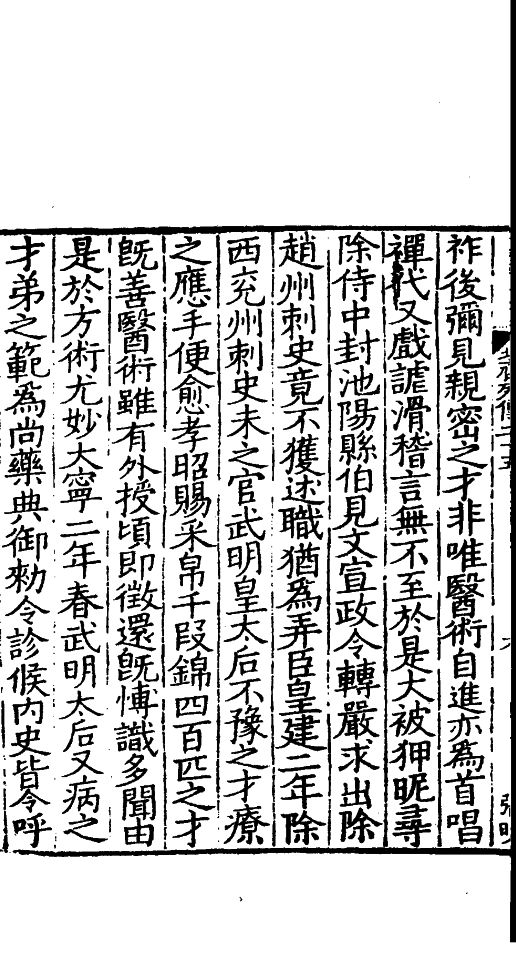 祚後彌見親密之才非唯醫術自進亦為首唱
禪代又戲謔滑稽言無不至於是大被狎昵尋
除侍中封池陽縣伯見文宣政令轉嚴求出除
趙州刺史竟不獲述職猶為弄臣皇建二年除
西兖州刺史未之官武明皇太后不豫之才療
之應手便愈孝昭賜采帛千段錦四百匹之才
旣善醫術雖有外授頃即徵還旣博識多聞由
是於方術尤妙大寧二年春武明太后又病之
才弟之範為尚藥典御勑令診候内史皆令呼